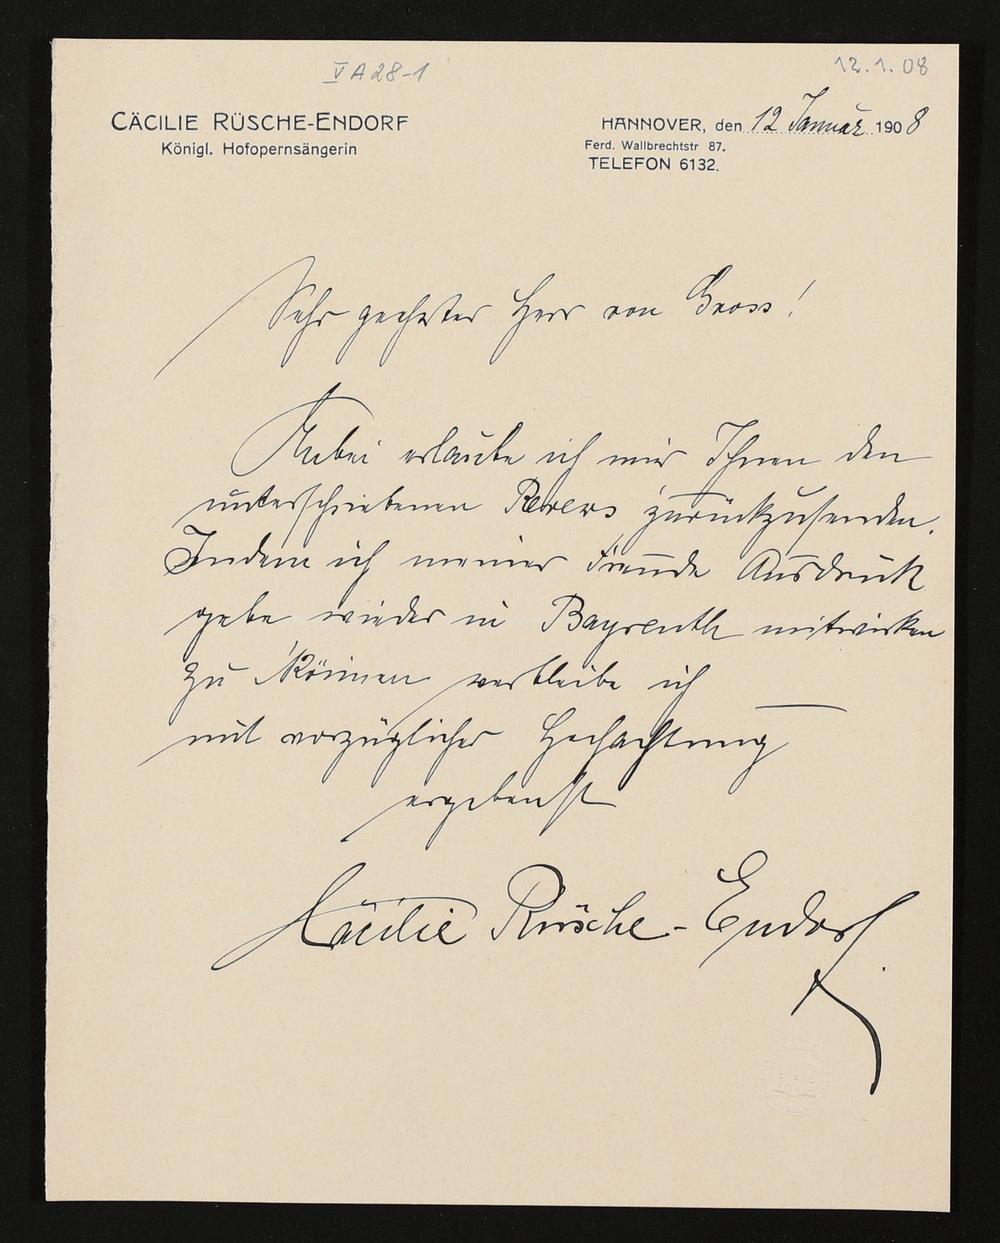 V A 28-1
12.1.08
CÄCILIE RÜSCHE-ENDORF
Königl. Hofopernsängerin
HANNOVER, den 12 Januar 1908
Ferd. Wallbrechtstr 87.
TELEFON 6132.
Sehr geehrter Herr von Gross!
Anbei erlaube ich mir Ihnen den
unterschriebenen Revers zurückzusenden.
Indem ich meiner Freude Ausdruck
gebe wieder in Bayreuth mitwirken
zu können verbleibe ich —
mit vorzüglicher Hochachtung
ergebenst
Cäcilie Rüsche-Endorf